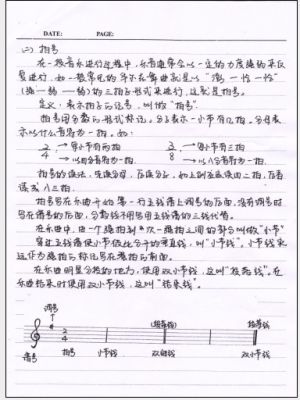 DATE: PAGE:
(二) 拍号
在一般音乐进行过程中,乐音通常会以一定的力度强弱来反
复进行,如一般常见的华尔兹舞曲就是以“澎一恰一恰”
(强一弱一弱)的三拍子形式来进行,这就是拍号。
定义:表示拍子的记号,叫做“拍号”。
拍号用分数的形式标记。分子表示一小节有几拍。分母表
示以什么音符为一拍。如:
2/4 → 每小节有两拍 3/8 → 每小节有三拍
→ 以四分音符为一拍。 → 以八分音符为一拍。
拍号的读法,先读分母,后读分子,如上例应该读四二拍,后者
读为八三拍。
拍号写在乐曲开始第一行五线谱上调号的后面,没有调号时
写在谱号的后面,分数线不用写用五线谱的三线代替。
在乐曲中,由一个强拍到次一强拍之间的部分叫做“小节”
穿过五线谱使小节彼此分开的垂直线,叫“小节线”。小节线永
远作为强拍的标记写在强拍的前面。
在乐曲明显分段的地方,使用双小节线,这叫“段落线”。在
乐曲结束时使用双小节线,这叫“结束线”。
调号
(段落线) 结束线
2
4
谱号 拍号 小节线 双纵线 双小节线